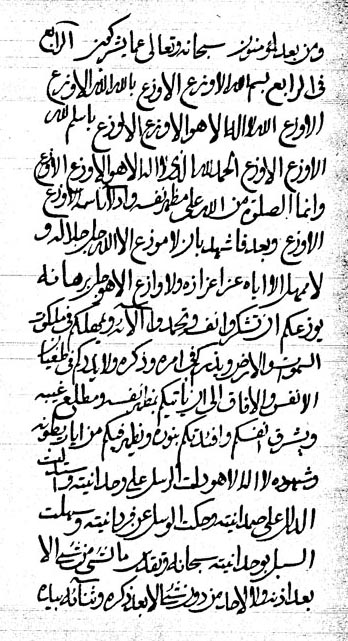 و من بعد المؤمنون سبحانه و تعالى عما يشركون الرابع
فى الرابع بسم الله الاوزع الاوزع بالله الله الاوزع
الاوزع الله لا اله الا هو الاوزع الاوزع باسم الله
الاوزع الاوزع الحمد لله الذى لا اله الا هو الاوزع الاوزع
و انما الصلوة من الله على مظهر نفسه الاوزع
الاوزع و بعد فاشهد بان لا موزع الا الله جل جلاله و
لا ممهل الا اياه عز اعزازه و لا وازع الا هو جل برهانه
يوزعكم ان تشكروا نفسه و تحمدوا آلائه و يمهلكم فى ملكوت
السموات و الارض و يذكركم فى امره و ذكره و لا يمدكم فى طغيان
الانفس و الافاق الى ان ياتيكم بمظهر نفسه و مطلع غيبه
و يشرق انفسكم و افئدتكم بنوره و يظهر فيكم من ايات بطونه
و شهد انه لا اله الا هو دلت الرسل على وحدانيته و استدلت
الدلل على صمدانيته و حكت الرسل عن فردانيته و سهلت
السبل بوحدانيته سبحانه و تقدس ما لشئ من شئ الا
بعد اذنه و لا لاحد من دون شئ الا بعد ذكره و ثنائه